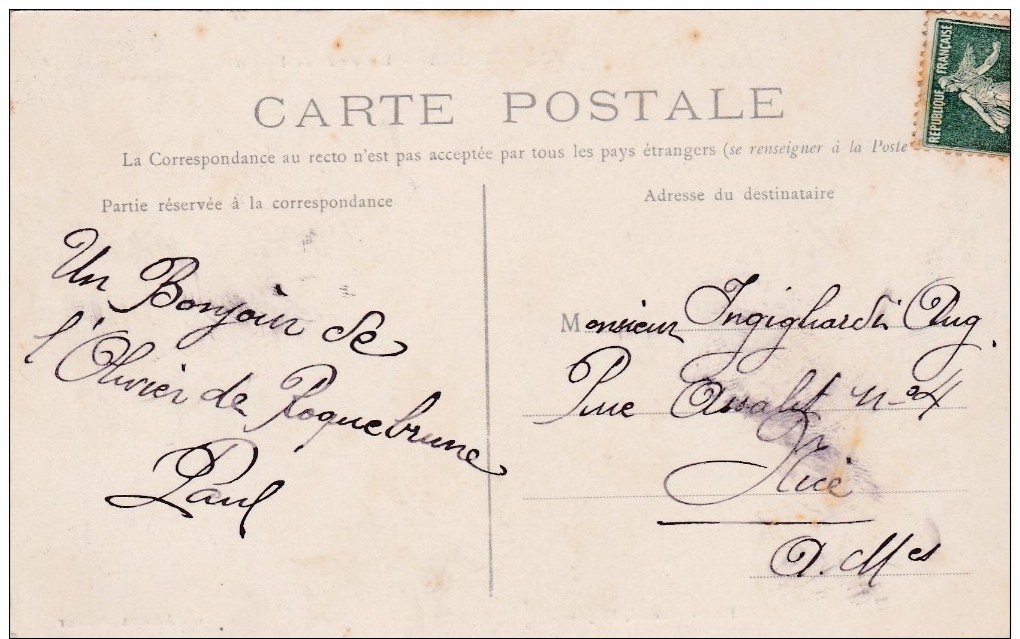 CARTE POSTALE
RÉPUBLIQUE FRANÇAISE
La Correspondance au recto n'est pas acceptée par tous les pays étrangers (se renseigner à la Poste
Partie réservée à la correspondance
Un Bonjour de
l'Olivier de Roquebrune
Paul
Adresse du destinataire
Monsieur Ingigliardi Aug.
Rue Assalit n-24
Nice
A. Mes